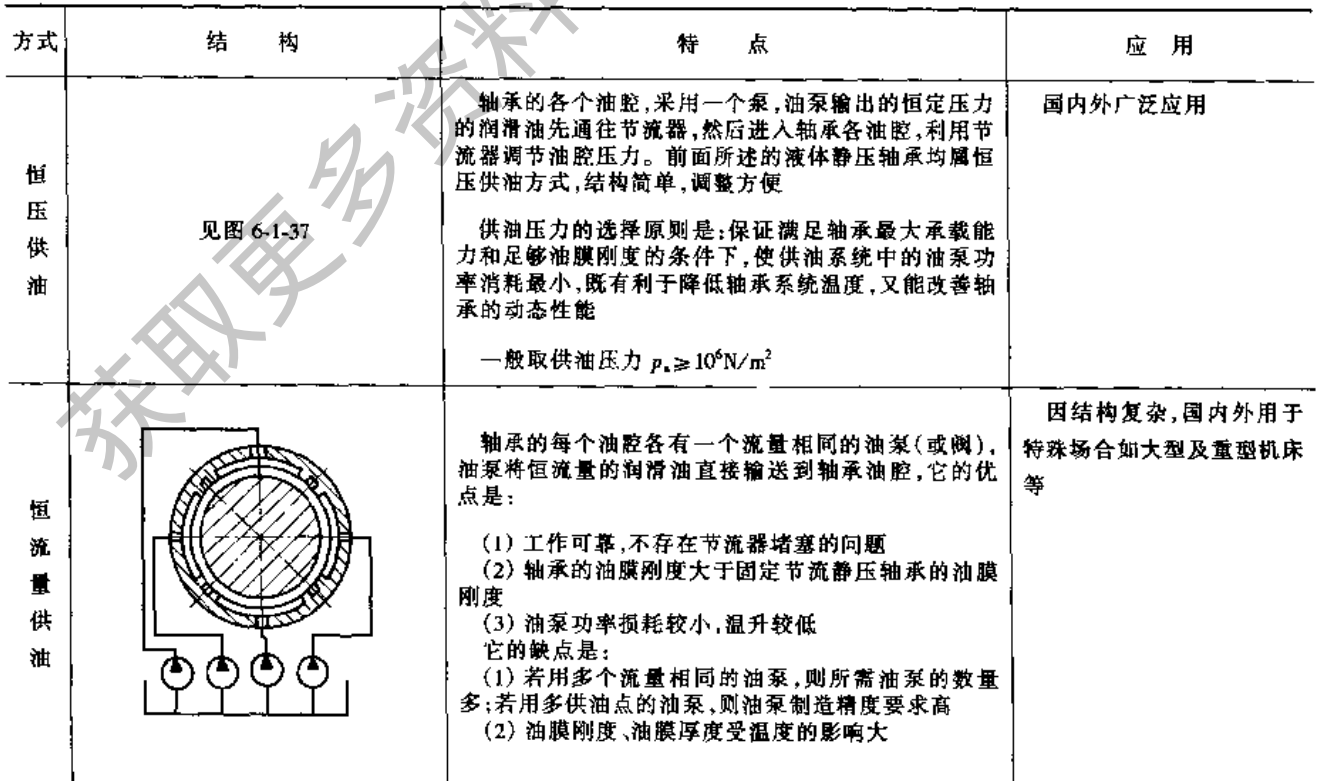 方式
结 构
特 点
应 用
恒
压
供
油
见图 6-1-37
轴承的各个油腔,采用一个泵,油泵输出的恒定压力
的润滑油先通往节流器,然后进入轴承各油腔,利用节
流器调节油腔压力。前面所述的液体静压轴承均属恒
压供油方式,结构简单,调整方便
供油压力的选择原则是:保证满足轴承最大承载能
力和足够油膜刚度的条件下,使供油系统中的油泵功
率消耗最小,既有利于降低轴承系统温度,又能改善轴
承的动态性能
一般取供油压力 pₛ≥10⁶N/m²
国内外广泛应用
恒
流
量
供
油
轴承的每个油腔各有一个流量相同的油泵(或阀),
油泵将恒流量的润滑油直接输送到轴承油腔,它的优
点是:
(1) 工作可靠,不存在节流器堵塞的问题
(2) 轴承的油膜刚度大于固定节流静压轴承的油膜
刚度
(3) 油泵功率损耗较小,温升较低
它的缺点是:
(1) 若用多个流量相同的油泵,则所需油泵的数量
多;若用多供油点的油泵,则油泵制造精度要求高
(2) 油膜刚度、油膜厚度受温度的影响大
因结构复杂,国内外用于
特殊场合如大型及重型机床
等
获取更多资料